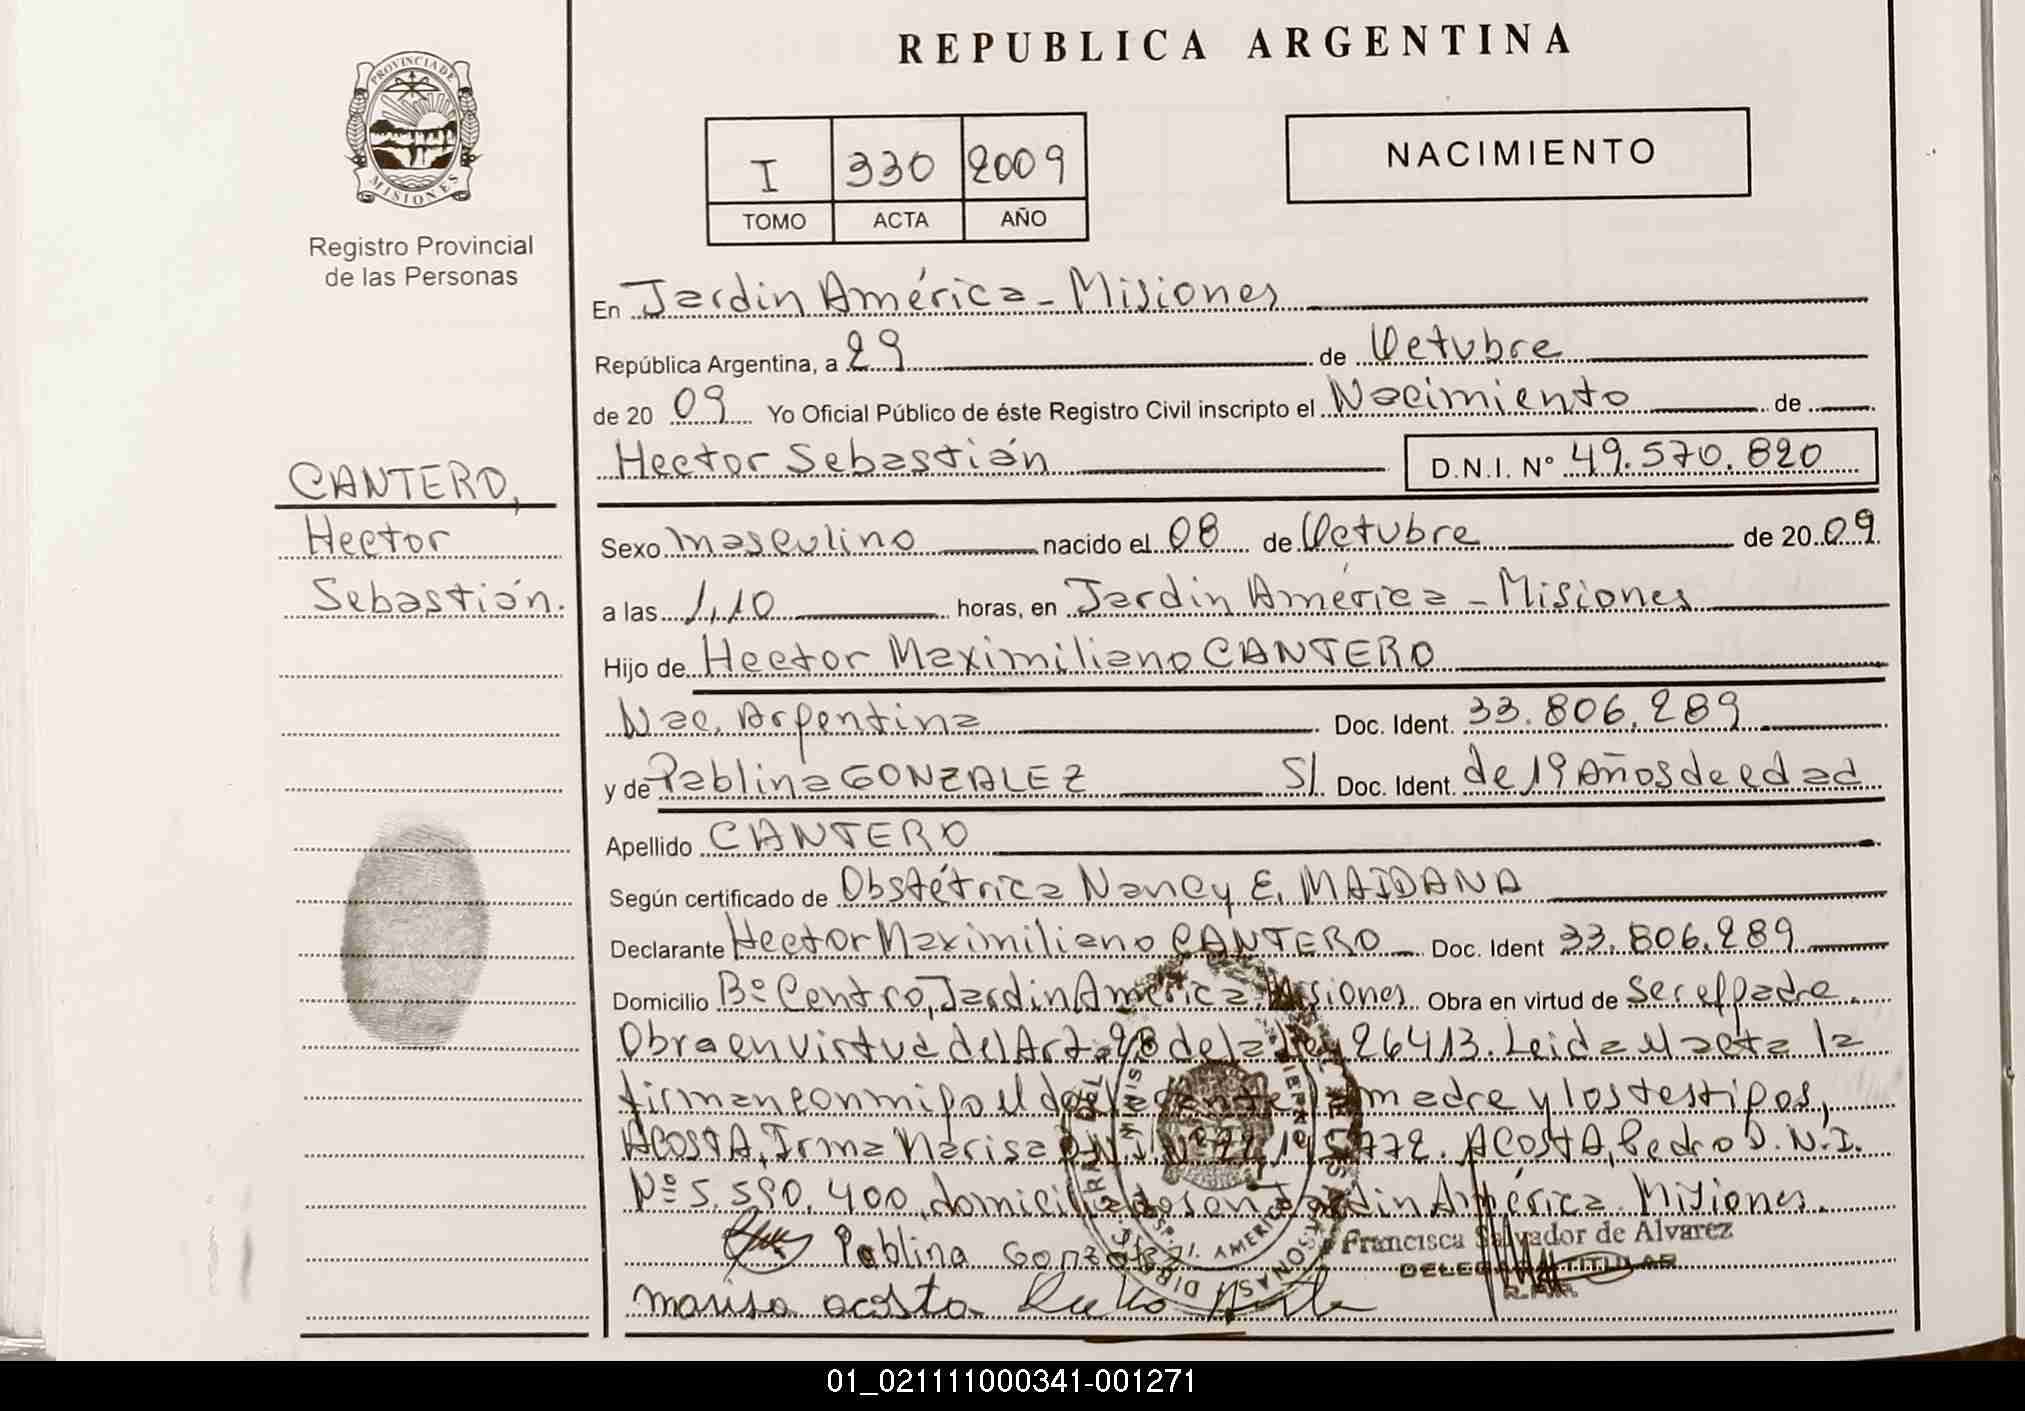 REPUBLICA ARGENTINA
PROVINCIA DE
MISIONES
Registro Provincial
de las Personas
I 330 2009
TOMO ACTA AÑO
NACIMIENTO
En Jardin América - Misiones
República Argentina, a 29 de Octubre
de 20 09 Yo Oficial Público de éste Registro Civil inscripto el Nacimiento de
Hector Sebastián D.N.I. N° 49.570.820
CANTERO,
Hector
Sebastián.
Sexo Masculino nacido el 08 de Octubre de 20 09
a las 1,10 horas, en Jardin América - Misiones
Hijo de Hector Maximiliano CANTERO
Nac. Argentina Doc. Ident. 33.806.289
y de Pablina GONZALEZ S/ Doc. Ident. de 19 Años de edad
Apellido CANTERO
Según certificado de Obstétrica Nancy E. MAIDANA
Declarante Hector Maximiliano CANTERO Doc. Ident 33.806.289
Domicilio Bº Centro, Jardin América Misiones Obra en virtud de ser el padre.
Obra en virtud del Art. 28 de la Ley 26413. Leida el acta la
firman conmigo el la madre y los testigos,
ACOSTA, Irma Marisa D.N.I. Nº ACOSTA, Pedro D.N.I.
Nº 5.590.400, domiciliados en Jardin América Misiones.
Pablina Gonzalez
Francisca Salvador de Alvarez
DELEGADA TITULAR
marisa acosta
01_021111000341-001271